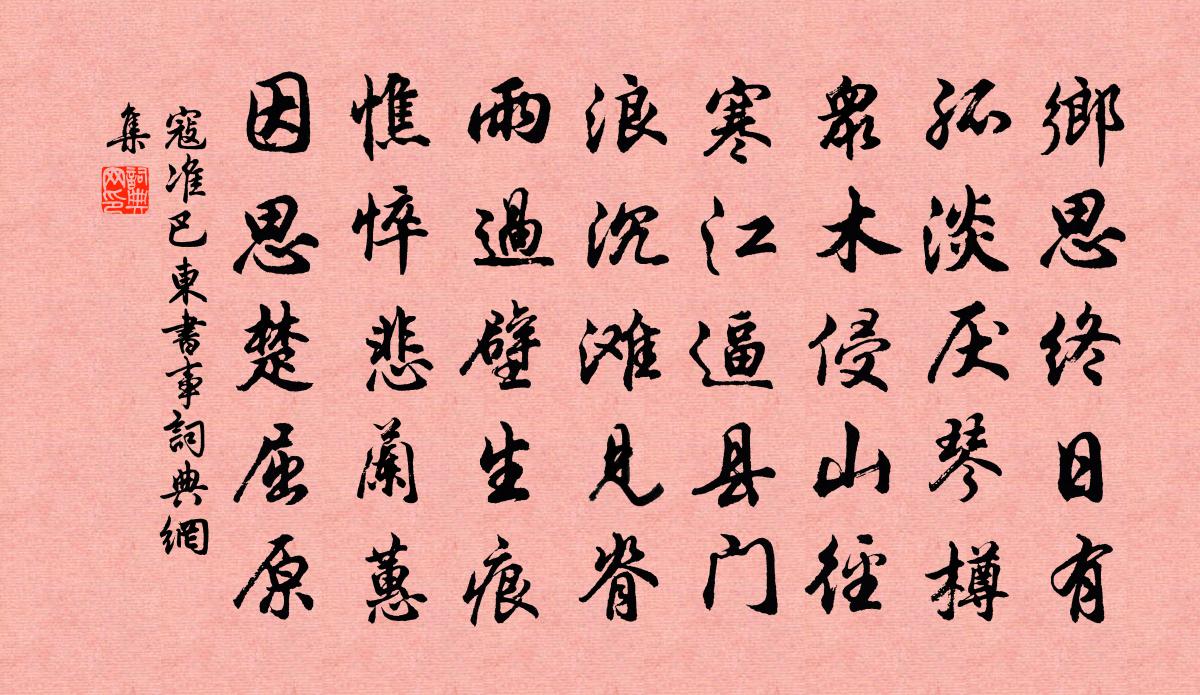 鄉思終日有
孤淡厌琴樽
眾木侵山徑
寒江逼县门
浪沉滩見脊
雨過壁生痕
憔悴悲蘭蕙
因思楚屈原
寇准巴東書事詞典網
集
詞典
网印